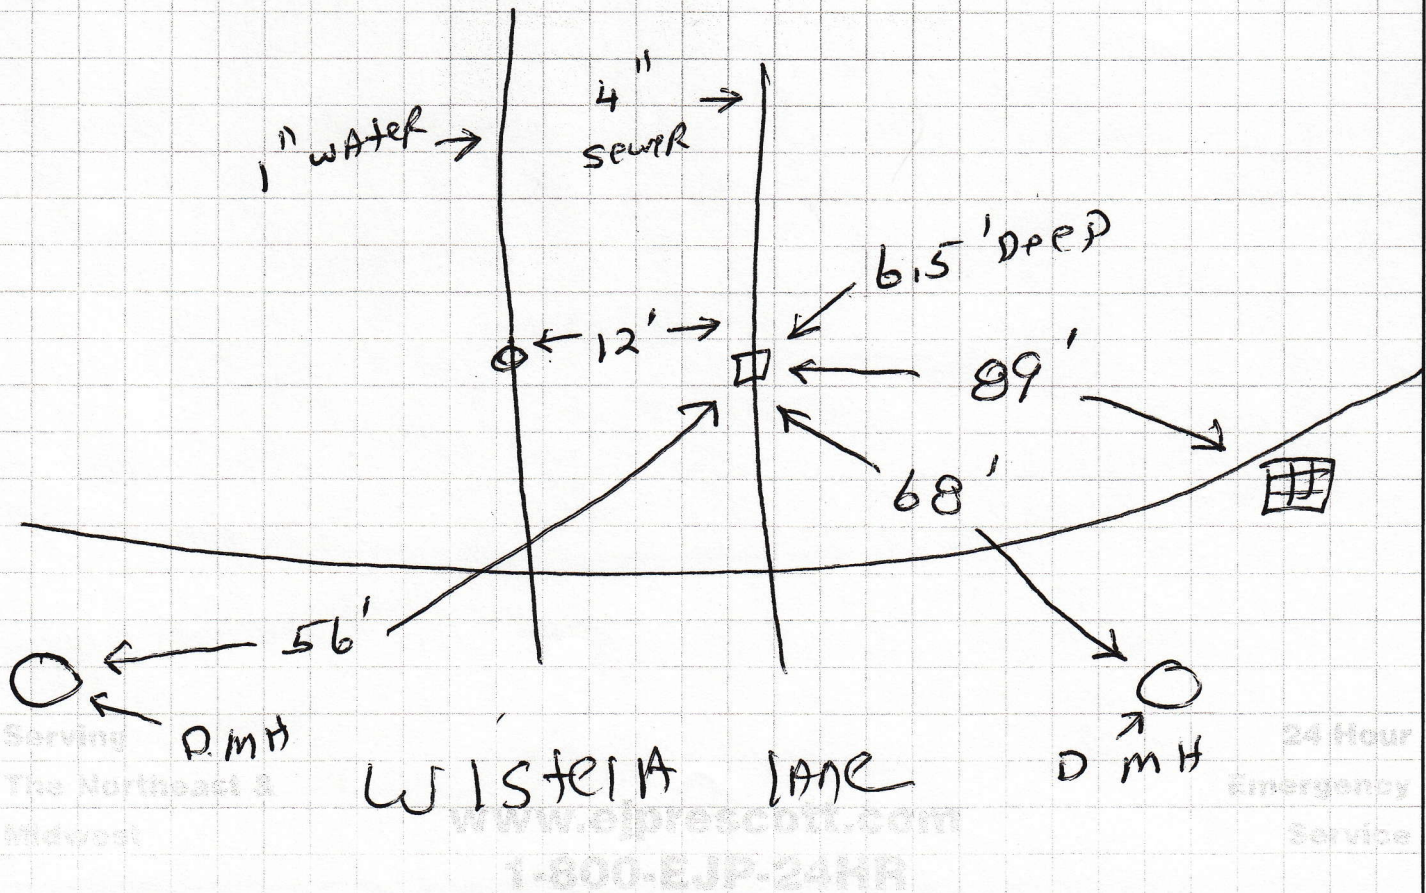 4"
sewer
1" water
6.5' Deep
12'
89'
68'
56'
D.MH
DMH
Wisteria lane
Serving
The Northeast &
Midwest
www.ejprescott.com
1-800-EJP-24HR
24 Hour
Emergency
Service